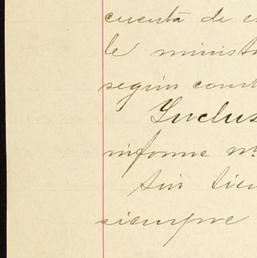 cuenta de e
le ministr
según cons
Inclus
informe m
sin tie
siempre